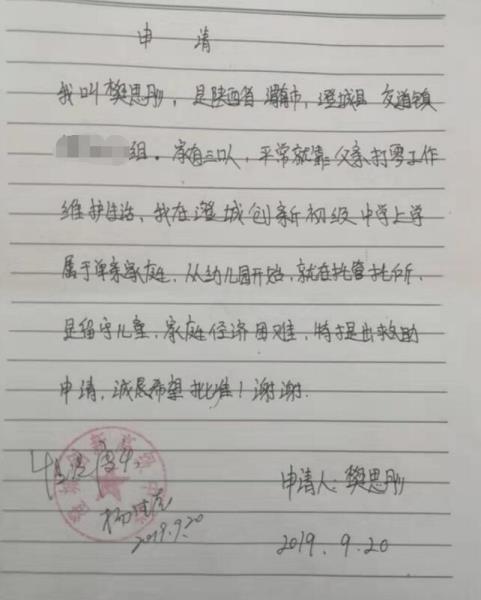 申 请
我叫樊思刚，是陕西省渭南市，澄城县 交道镇
组。家有三口人，平常就靠父亲打零工作
维护生活、我在澄城创新初级中学上学
属于单亲家庭，从幼儿园开始，就在托管托所，
是留守儿童，家庭经济困难，特提出救助
申请，诚恳希望批准！谢谢.
申请人：樊思刚
2019.9.20
2019.9.20